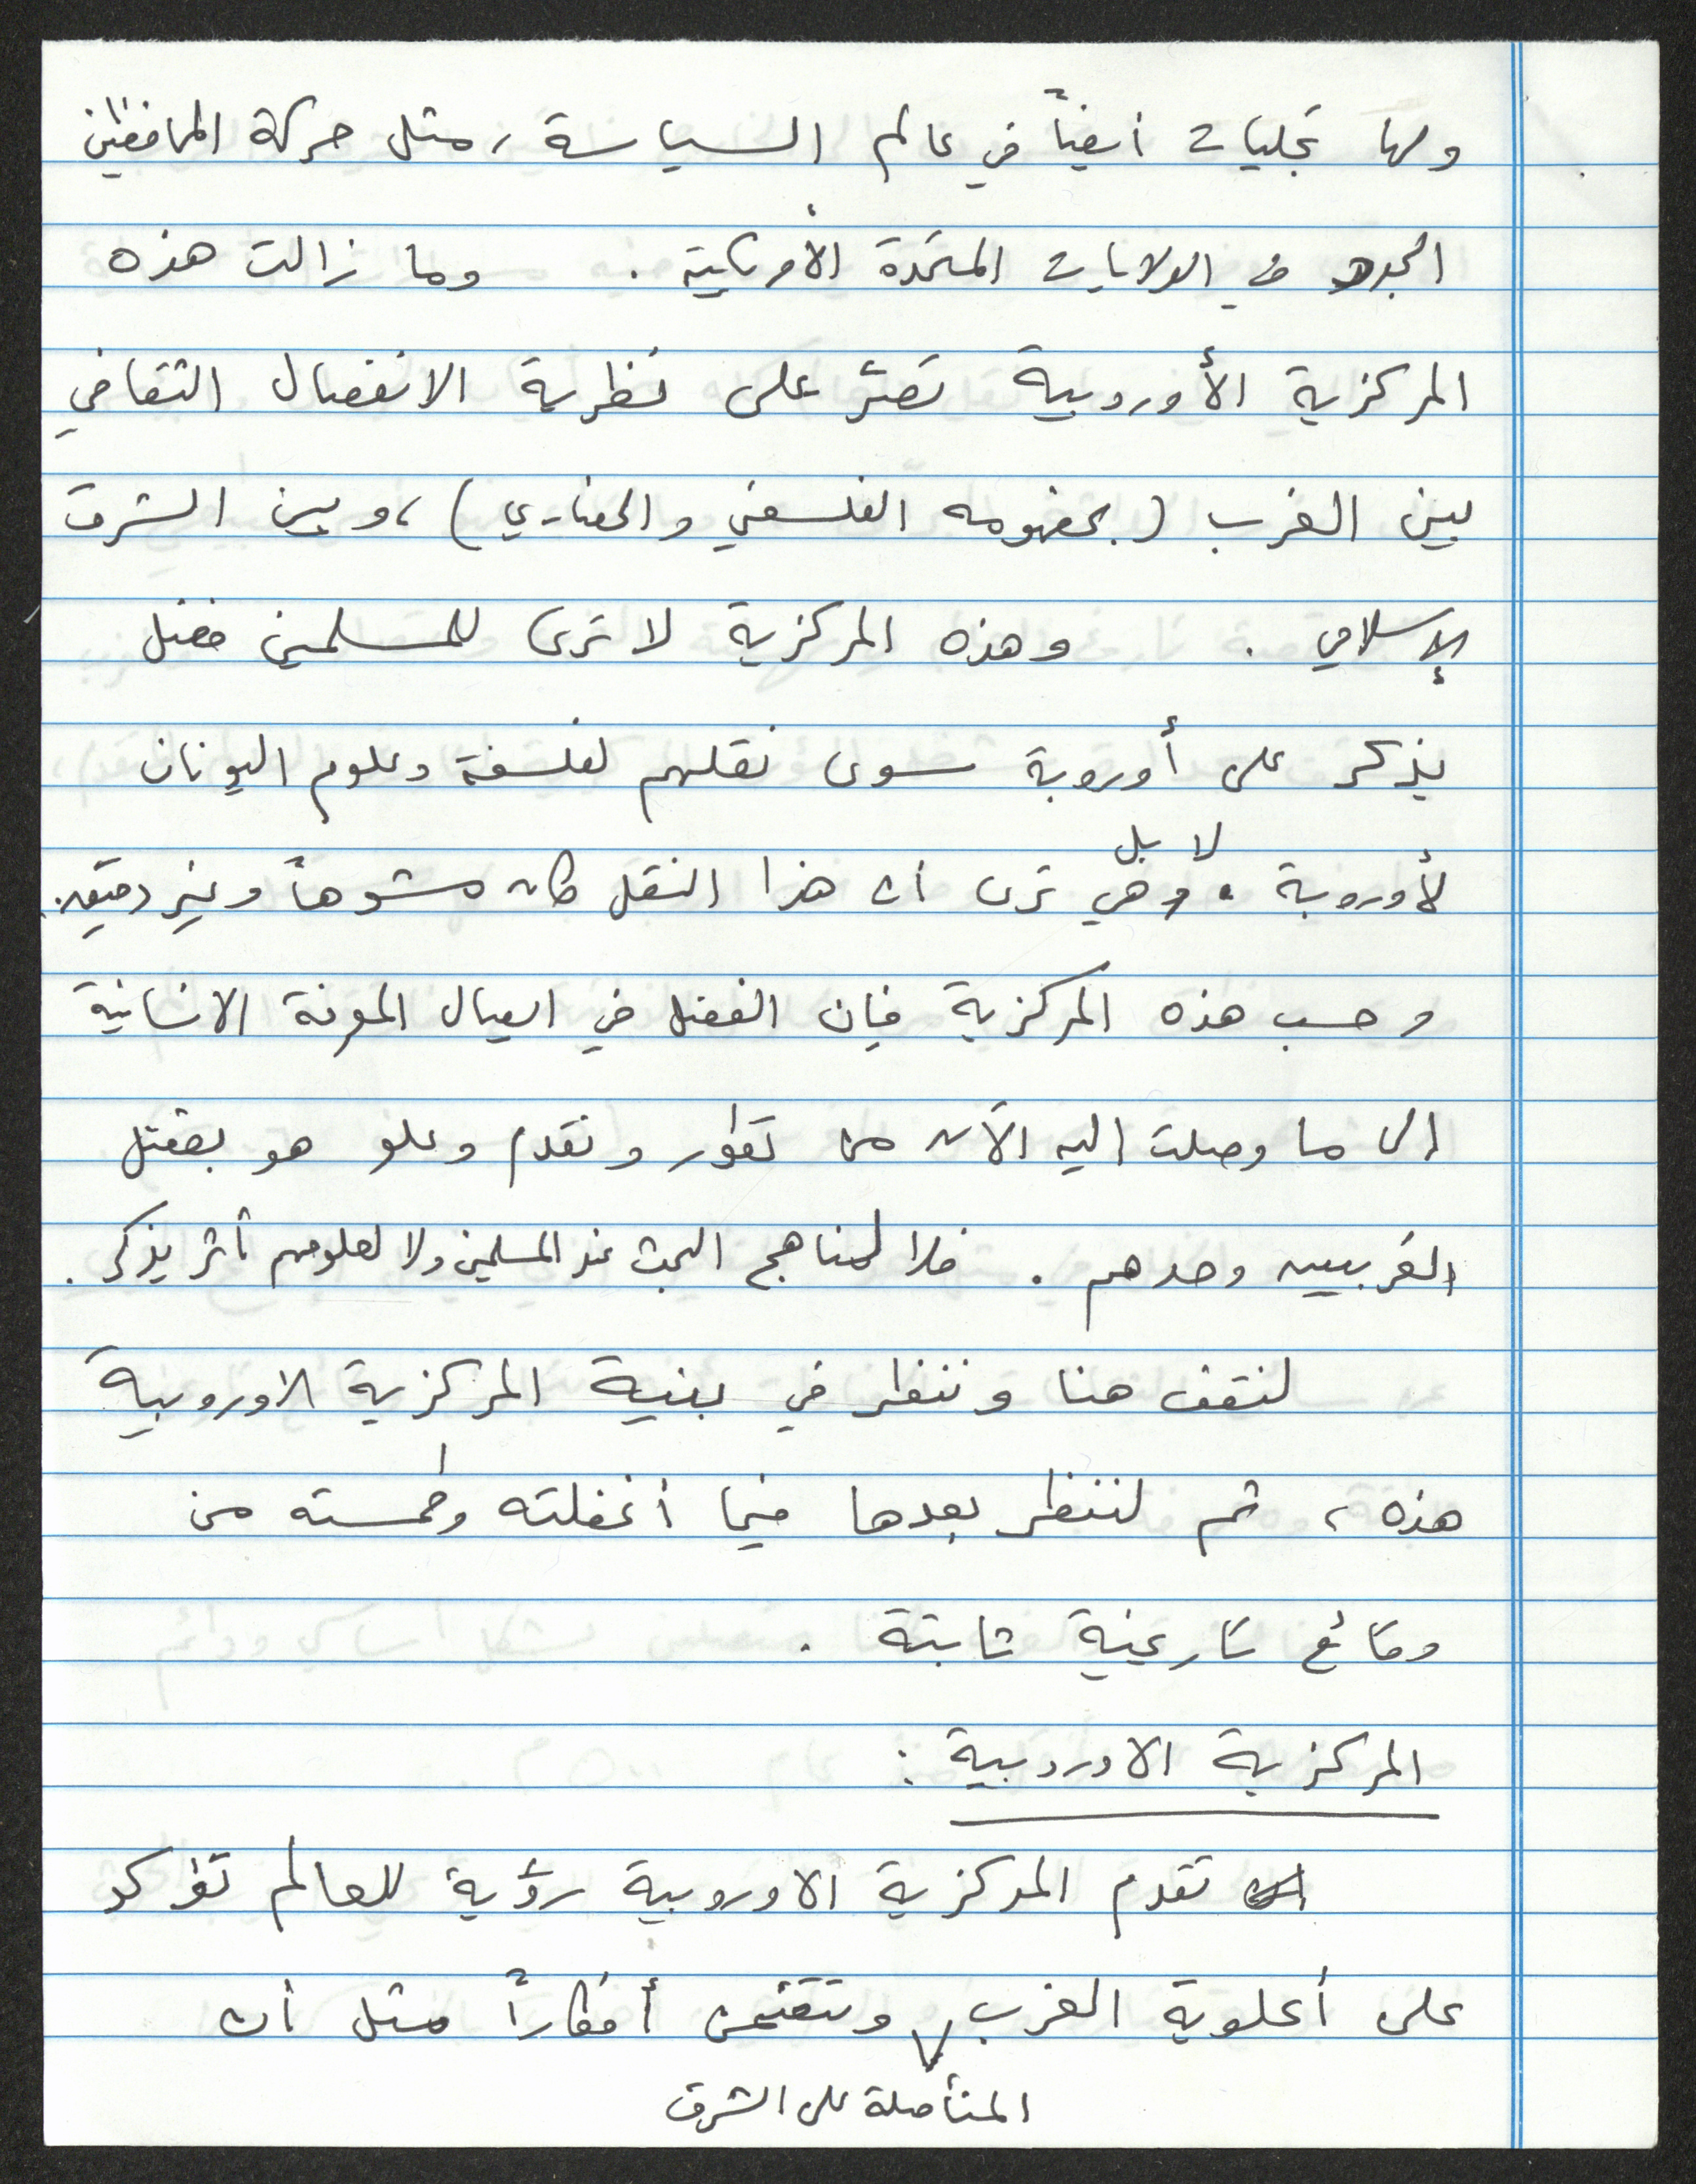 ولها تجليات أيضاً في عالم السياسة، مثل حركة المحافظين
الجدد في الولايات المتحدة الأمريكية . وما زالت هذه
المركزية الأوروبية تصرّ على نظرية الانفصال الثقافي
بين الغرب (بمفهومه الفلسفي والحضاري)، وبين الشرق
الإسلامي . وهذه المركزية لا ترى للمسلمين فضل
يذكر على أوروبة سوى نقلهم لفلسفة وعلوم اليونان
لا بل
لأوروبة . وهي ترى أن هذا النقل كان مشوهاً وغير دقيق.
وحسب هذه المركزية فإن الفضل في ايصال المعرفة الانسانية
الى ما وصلت اليه الآن من تطور وتقدم وعلو هو بفضل
الغربيين وحدهم . فلا لمناهج البحث عند المسلمين ولا لعلومهم تأثر يذكر .
لنقف هنا وننظر في بنية المركزية الاوروبية
هذه ، ثم لننظر بعدها فيما أغفلته وطمسته من
وقائع تاريخية ثابتة .
المركزية الاوروبية :
تقدم المركزية الاوروبية رؤية للعالم تؤكد
على أعلوية الغرب وتتضمن أفكاراً مثل أن
المتأصلة على الشرق